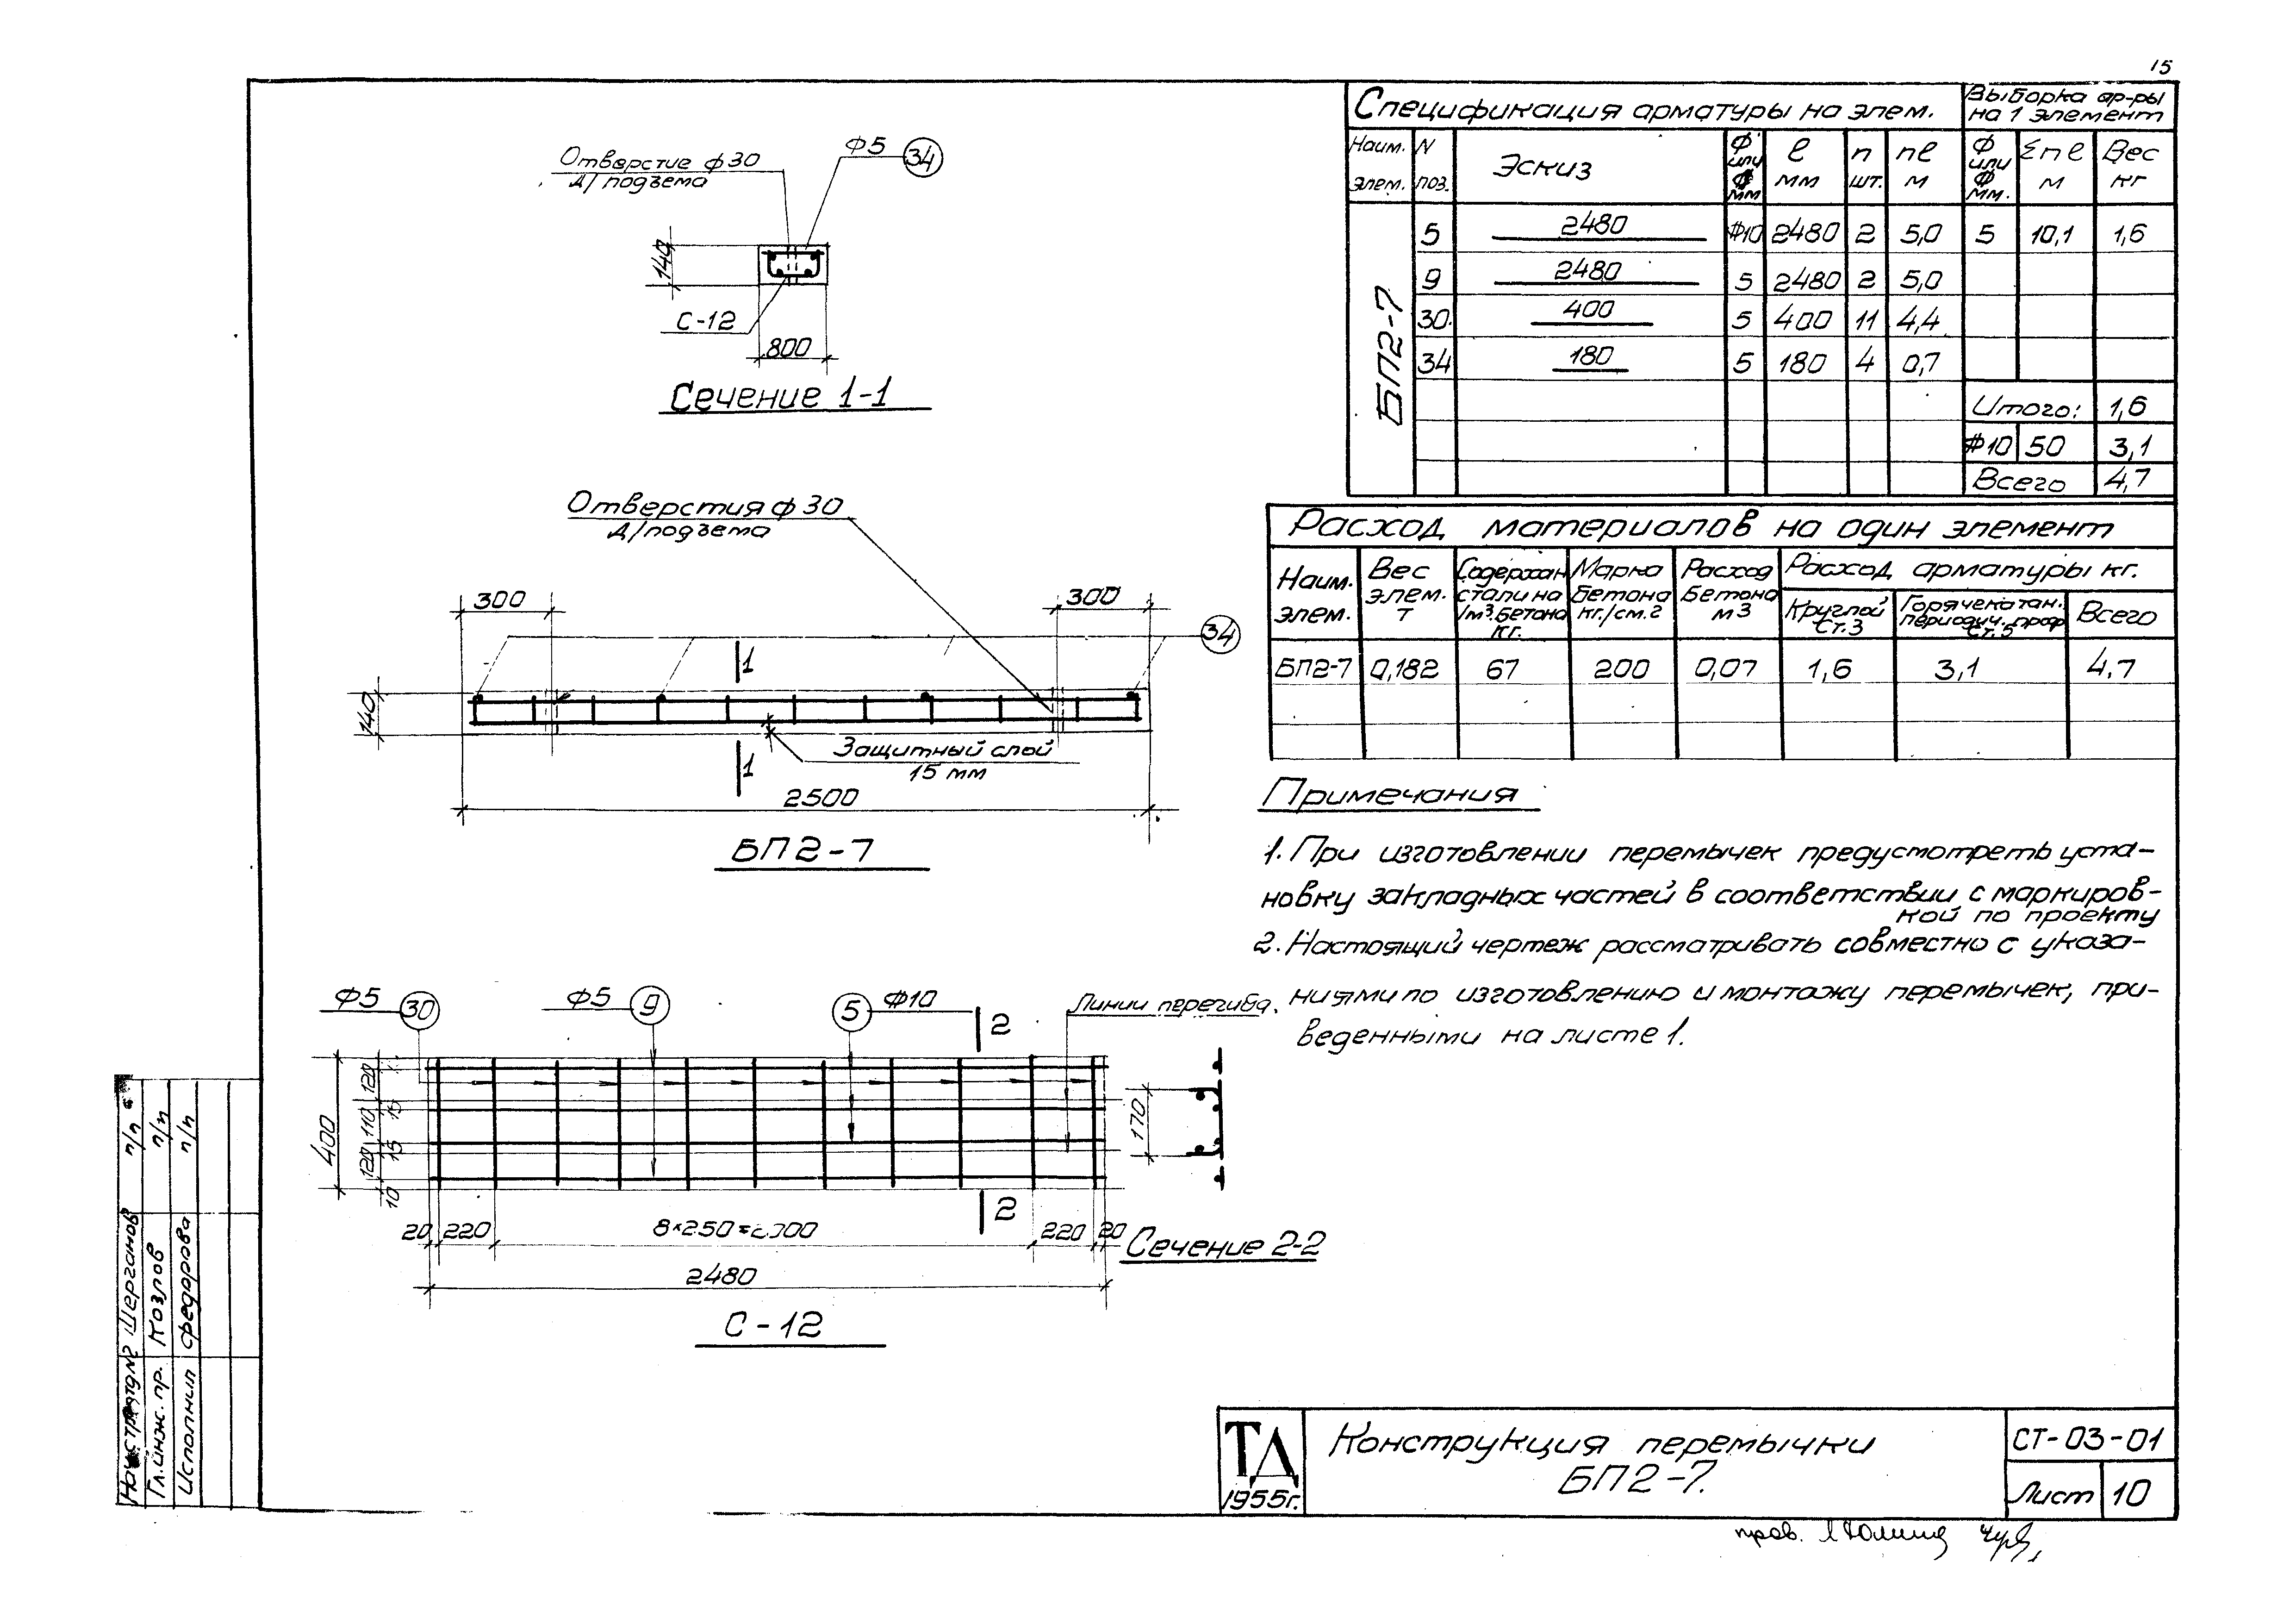 15
Отверстие ф30
д/подъема
Ф5 34
140
С-12
800
Сечение 1-1
Отверстия ф30
д/подъема
300
300
34
1
140
Защитный слой
15 мм
1
2500
БП2-7
Ф5 30
Ф5 9
5 Ф10
2
Линии перегиба.
400
120
15
110
15
120
10
170
20 220
8×250=2000
220 20
2
2480
Сечение 2-2
С-12
Спецификация арматуры на элем.
Выборка ар-ры
на 1 элемент
Наим. элем. N поз. Эскиз Ф или Ф мм ℓ мм n шт. nℓ м Ф или Ф мм. Σnℓ м Вес кг
БП2-7
5 2480 Ф10 2480 2 5,0 5 10,1 1,6
9 2480 5 2480 2 5,0
30 400 5 400 11 4,4
34 180 5 180 4 0,7
Итого: 1,6
Ф10 50 3,1
Всего 4,7
Расход материалов на один элемент
Наим. элем. Вес элем. т Содержан стали на 1м³.бетона кг. Марка Бетона кг./см.2 Расход Бетона м3 Расход арматуры кг.
Круглой Ст.3 Горячекатан. периодич. проф Ст.5 Всего
БП2-7 0,182 67 200 0,07 1,6 3,1 4,7
Примечания
1. При изготовлении перемычек предусмотреть уста-
новку закладных частей в соответствии с маркиров-
кой по проекту
2. Настоящий чертеж рассматривать совместно с указа-
ниями по изготовлению и монтажу перемычек, при-
веденными на листе 1.
Гл.инж. пр. Козлов п/п
Исполнил Федорова п/п
ТД
1955г.
Конструкция перемычки
БП2-7.
СТ-03-01
Лист 10
пров.